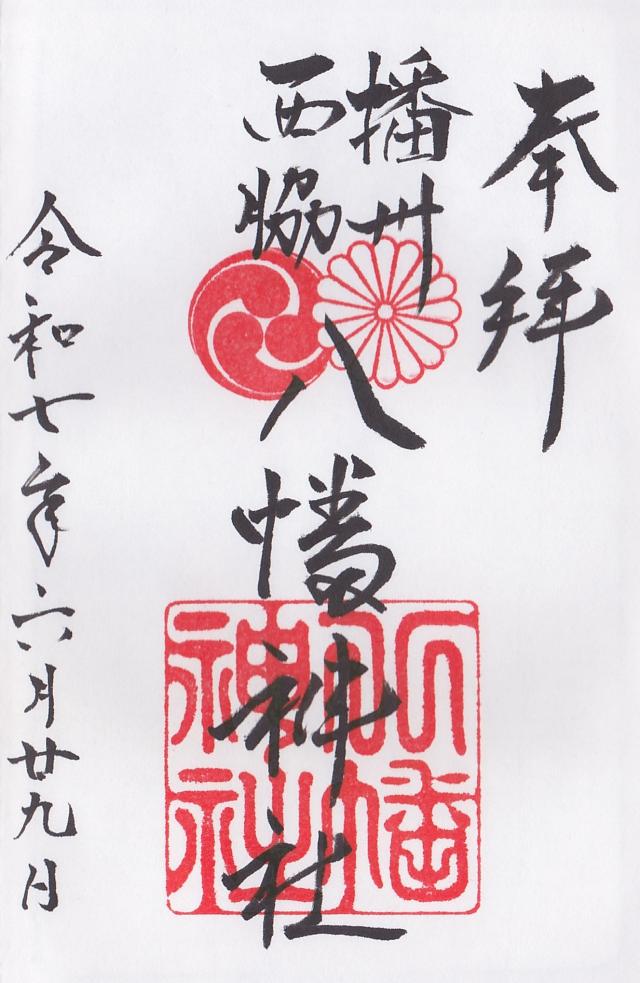 奉拝
播州
西脇
八幡神社
八幡
神社
令和七年六月廿九日